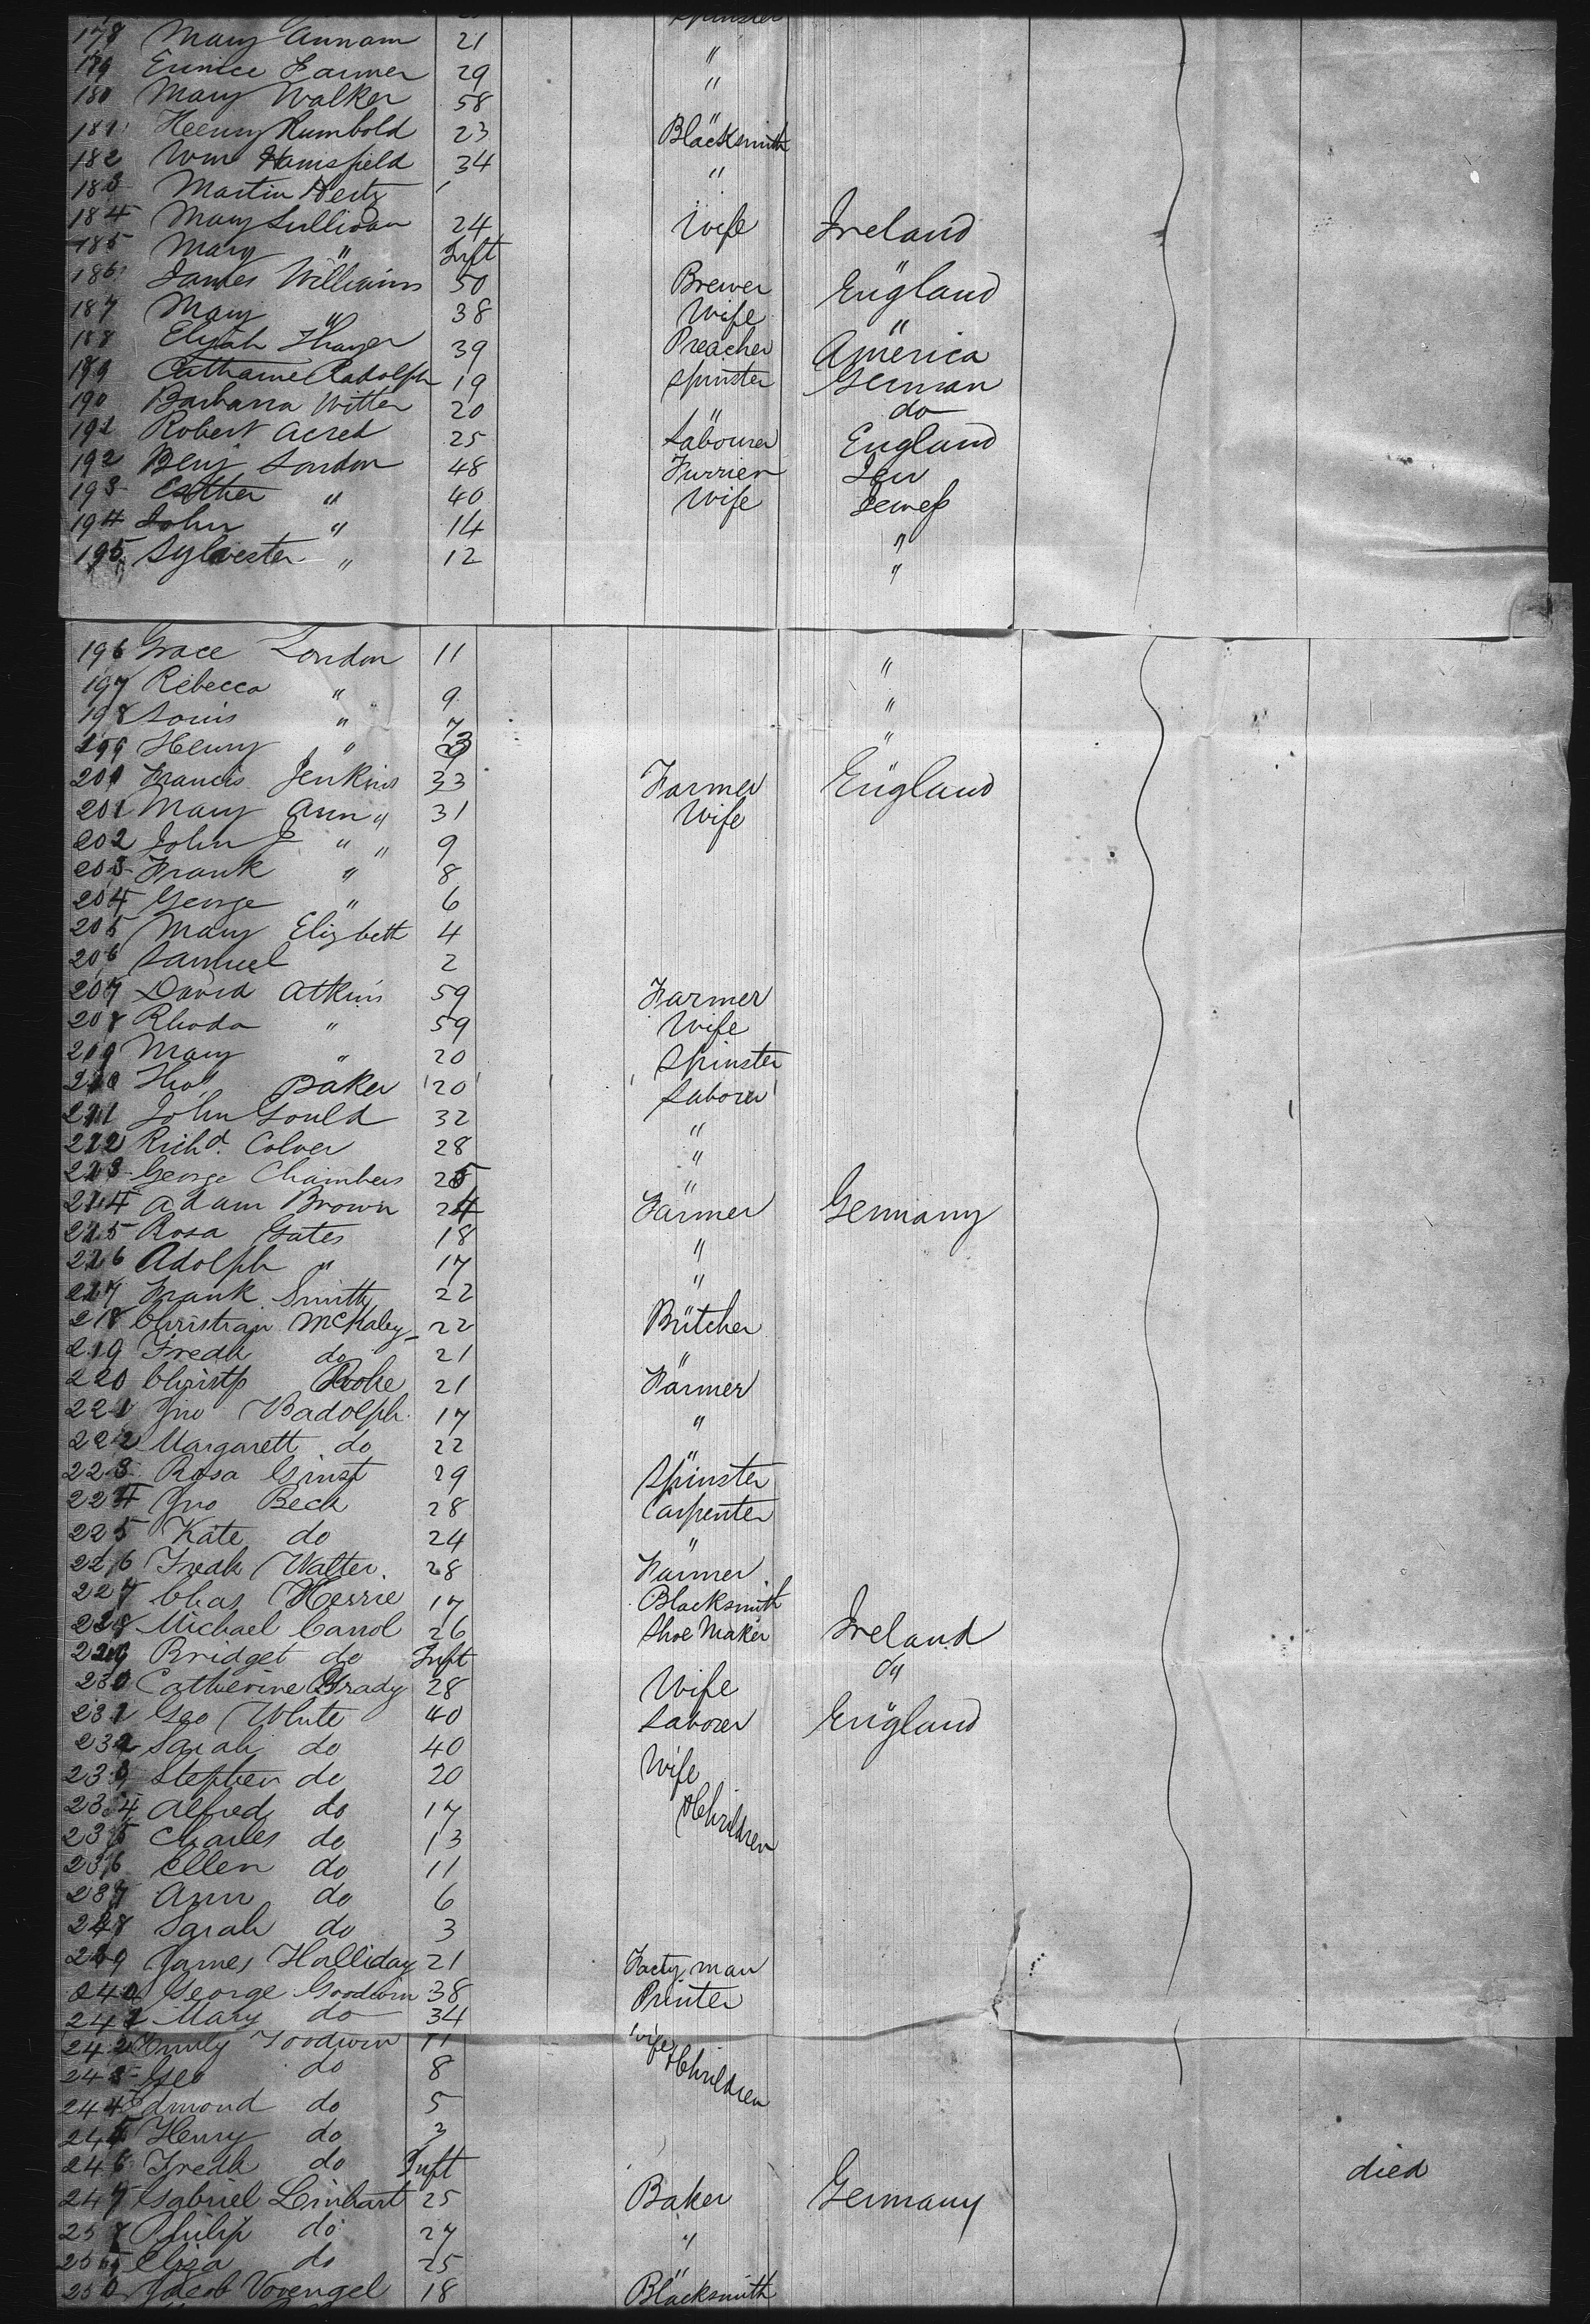 Spinster
178 Mary Annam 21 "
179 Eunice Farmer 29 "
180 Mary Walker 58 "
181 Henry Rumbold 23 Blacksmith
182 Wm Hamsfield 34 "
183 Martin Hertz
184 Mary Sullivan 24 Wife Ireland
185 Mary " Inft
186 James Williams 50 Brewer England
187 Mary " 38 Wife "
188 Elijah Thayer 39 Preacher America
189 Catharine Radolph 19 Spinster German
190 Barbarra Witter 20 " do
192 Robert Acred 25 Labourer England
192 Benj London 48 Furrier Jew
193 Esther " 40 Wife Jewess
194 John " 14 "
195 Sylvester " 12 "
196 Grace London 11 "
197 Rebecca " 9 "
198 Louis " 7 "
199 Henry " 3
200 Francis Jenkins 33 Farmer England
201 Mary Ann " 31 Wife
202 John J " " 9
203 Frank " 8
204 George " 6
205 Mary Elizbeth 4
206 Samuel 2
207 David Atkins 59 Farmer
208 Rhoda " 59 Wife
209 Mary " 20 Spinster
210 Thos Baker 20 Laborer
211 John Gould 32 "
212 Richd. Colver 28 "
213 George Chambers 25 "
214 Adam Brown 24 Farmer Germany
215 Rosa Gates 18 "
216 Adolph " 17 "
217 Frank Smith 22
218 Christian McKaley 22 Butcher
219 Fredk do 21 "
220 Christp 21 Farmer
221 Jno Badolph 17 "
222 Margarett do 22 "
223 Rosa 29 Spinster
224 Jno Beck 28 Carpenter
225 Kate do 24 "
226 Fredk Walter. 28 Farmer
227 Chas Herrie 17 Blacksmith
228 Michael Carrol 26 Shoe Maker Ireland
229 Bridget do Inft do
230 Catherine Grady 28 Wife "
231 Geo White 40 Laborer England
232 Sarah do 40 Wife
233 Stephen do 20
234 Alfred do 17 Children
235 Charles do 13
236 Ellen do 11
237 Ann do 6
238 Sarah do 3
239 James Halliday 21 Facty man
240 George Goodwin 38 Printer
241 Mary do 34 Wife
242 Emily Goodwin 11 Children
243 Geo do 8
244 Edmond do 5
245 Henry do 3
246 Fredk do Inft died
247 Gabriel Linhart 25 Baker Germany
Philip do 27 "
Eliza do 25 "
250 Jacob Vovengel 18 Blacksmith